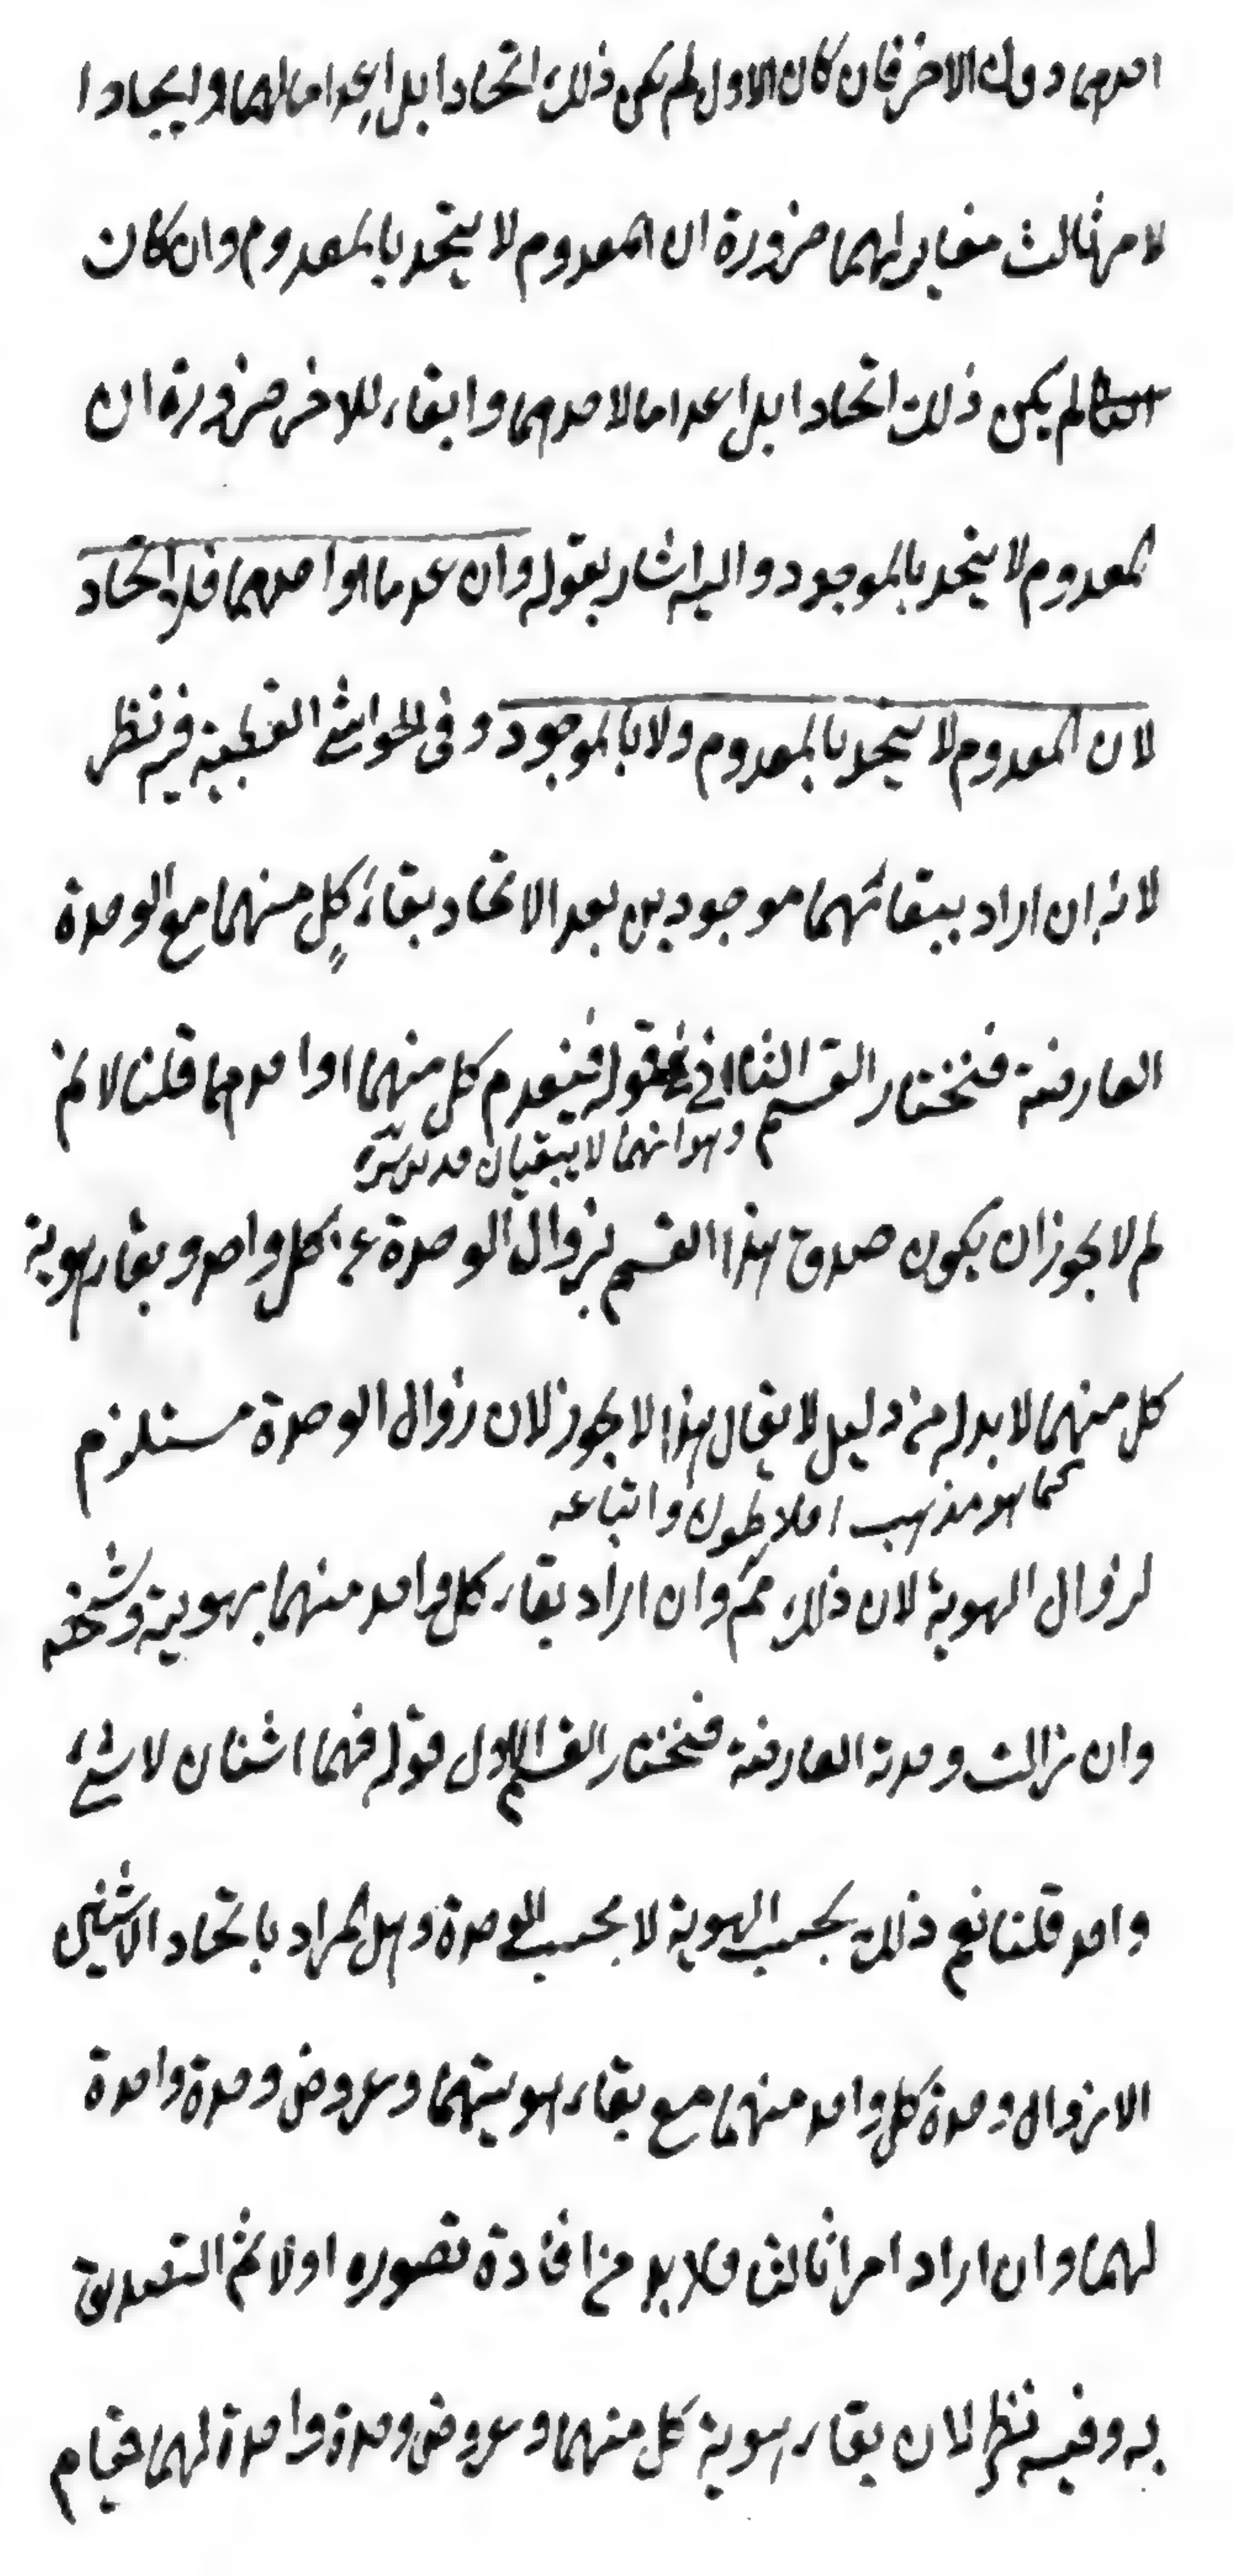 احدهما دون الاخر فان كان الاول لم يكن ذلك اتحادا بل اعداما لهما وايجادا
لامر ثالث مغاير لهما ضرورة ان المعدوم لا يتحد بالمعدوم وان كان
لم يكن ذلك اتحادا بل اعداما لاحدهما وابقاء للاخر ضرورة ان
المعدوم لا يتحد بالموجود واليه اشار بقوله وان عدما او احدهما فلا اتحاد
لان المعدوم لا يتحد بالمعدوم ولا بالموجود وفى الحواشى القطبية فيه نظر
لانه ان اراد ببقائهما موجودين بعد الاتحاد بقاء كل منهما مع الوحدة
العارضة فنختار القسم الثانى قوله فينعدم كل منهما او احدهما قلنا لانم
وهو انهما لا يبقيان
لم لا يجوز ان يكون صدق هذا القسم بزوال الوحدة عن كل واحد وبقاء هوية
كل منهما لابد له من دليل لا يقال هذا لا يجوز لان زوال الوحدة مستلزم
كما هو مذهب افلاطون واتباعه
لزوال الهوية لان ذلك مم وان اراد بقاء كل واحد منهما بهويته وتشخصه
وان زالت وحدته العارضة فنختار القسم الاول قوله فهما اثنان لا شئ
واحد قلنا نعم ذلك بحسب الهوية لا بحسب الوحدة وهل المراد باتحاد الاثنين
الا زوال وحدة كل واحد منهما مع بقاء هويتهما وعروض وحدة واحدة
لهما وان اراد امرا ثالثا فلابد من افادة تصوره اولا ثم التصديق
به وفيه نظر لان بقاء هوية كل منهما وعروض وحدة واحدة لهما قيام